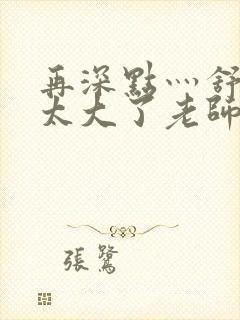 再深點灬舒
太大了老師
張鷺